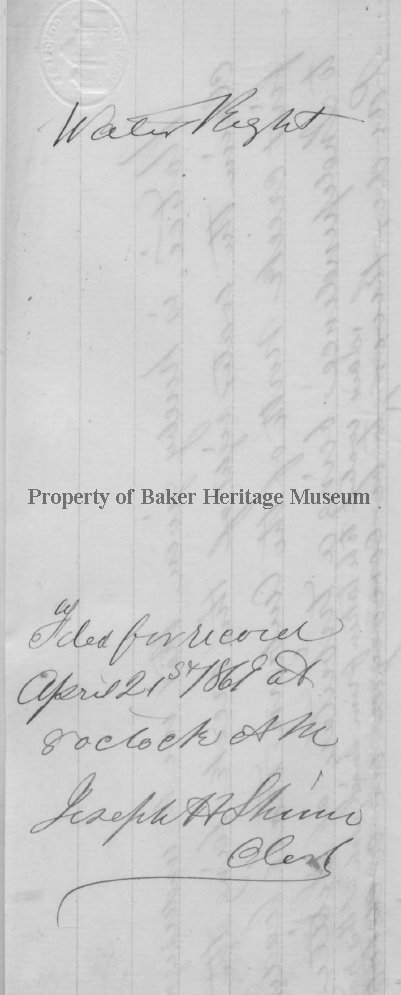 Water Right
Property of Baker Heritage Museum
Filed for record
April 21st 1869 at
8 oclock AM
Joseph H Shinn
Clerk